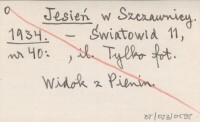 Jesień w Szczawnicy.
1934. - Światowid 11,
nr 40: , il. Tylko fot.
Widok z Pienin.